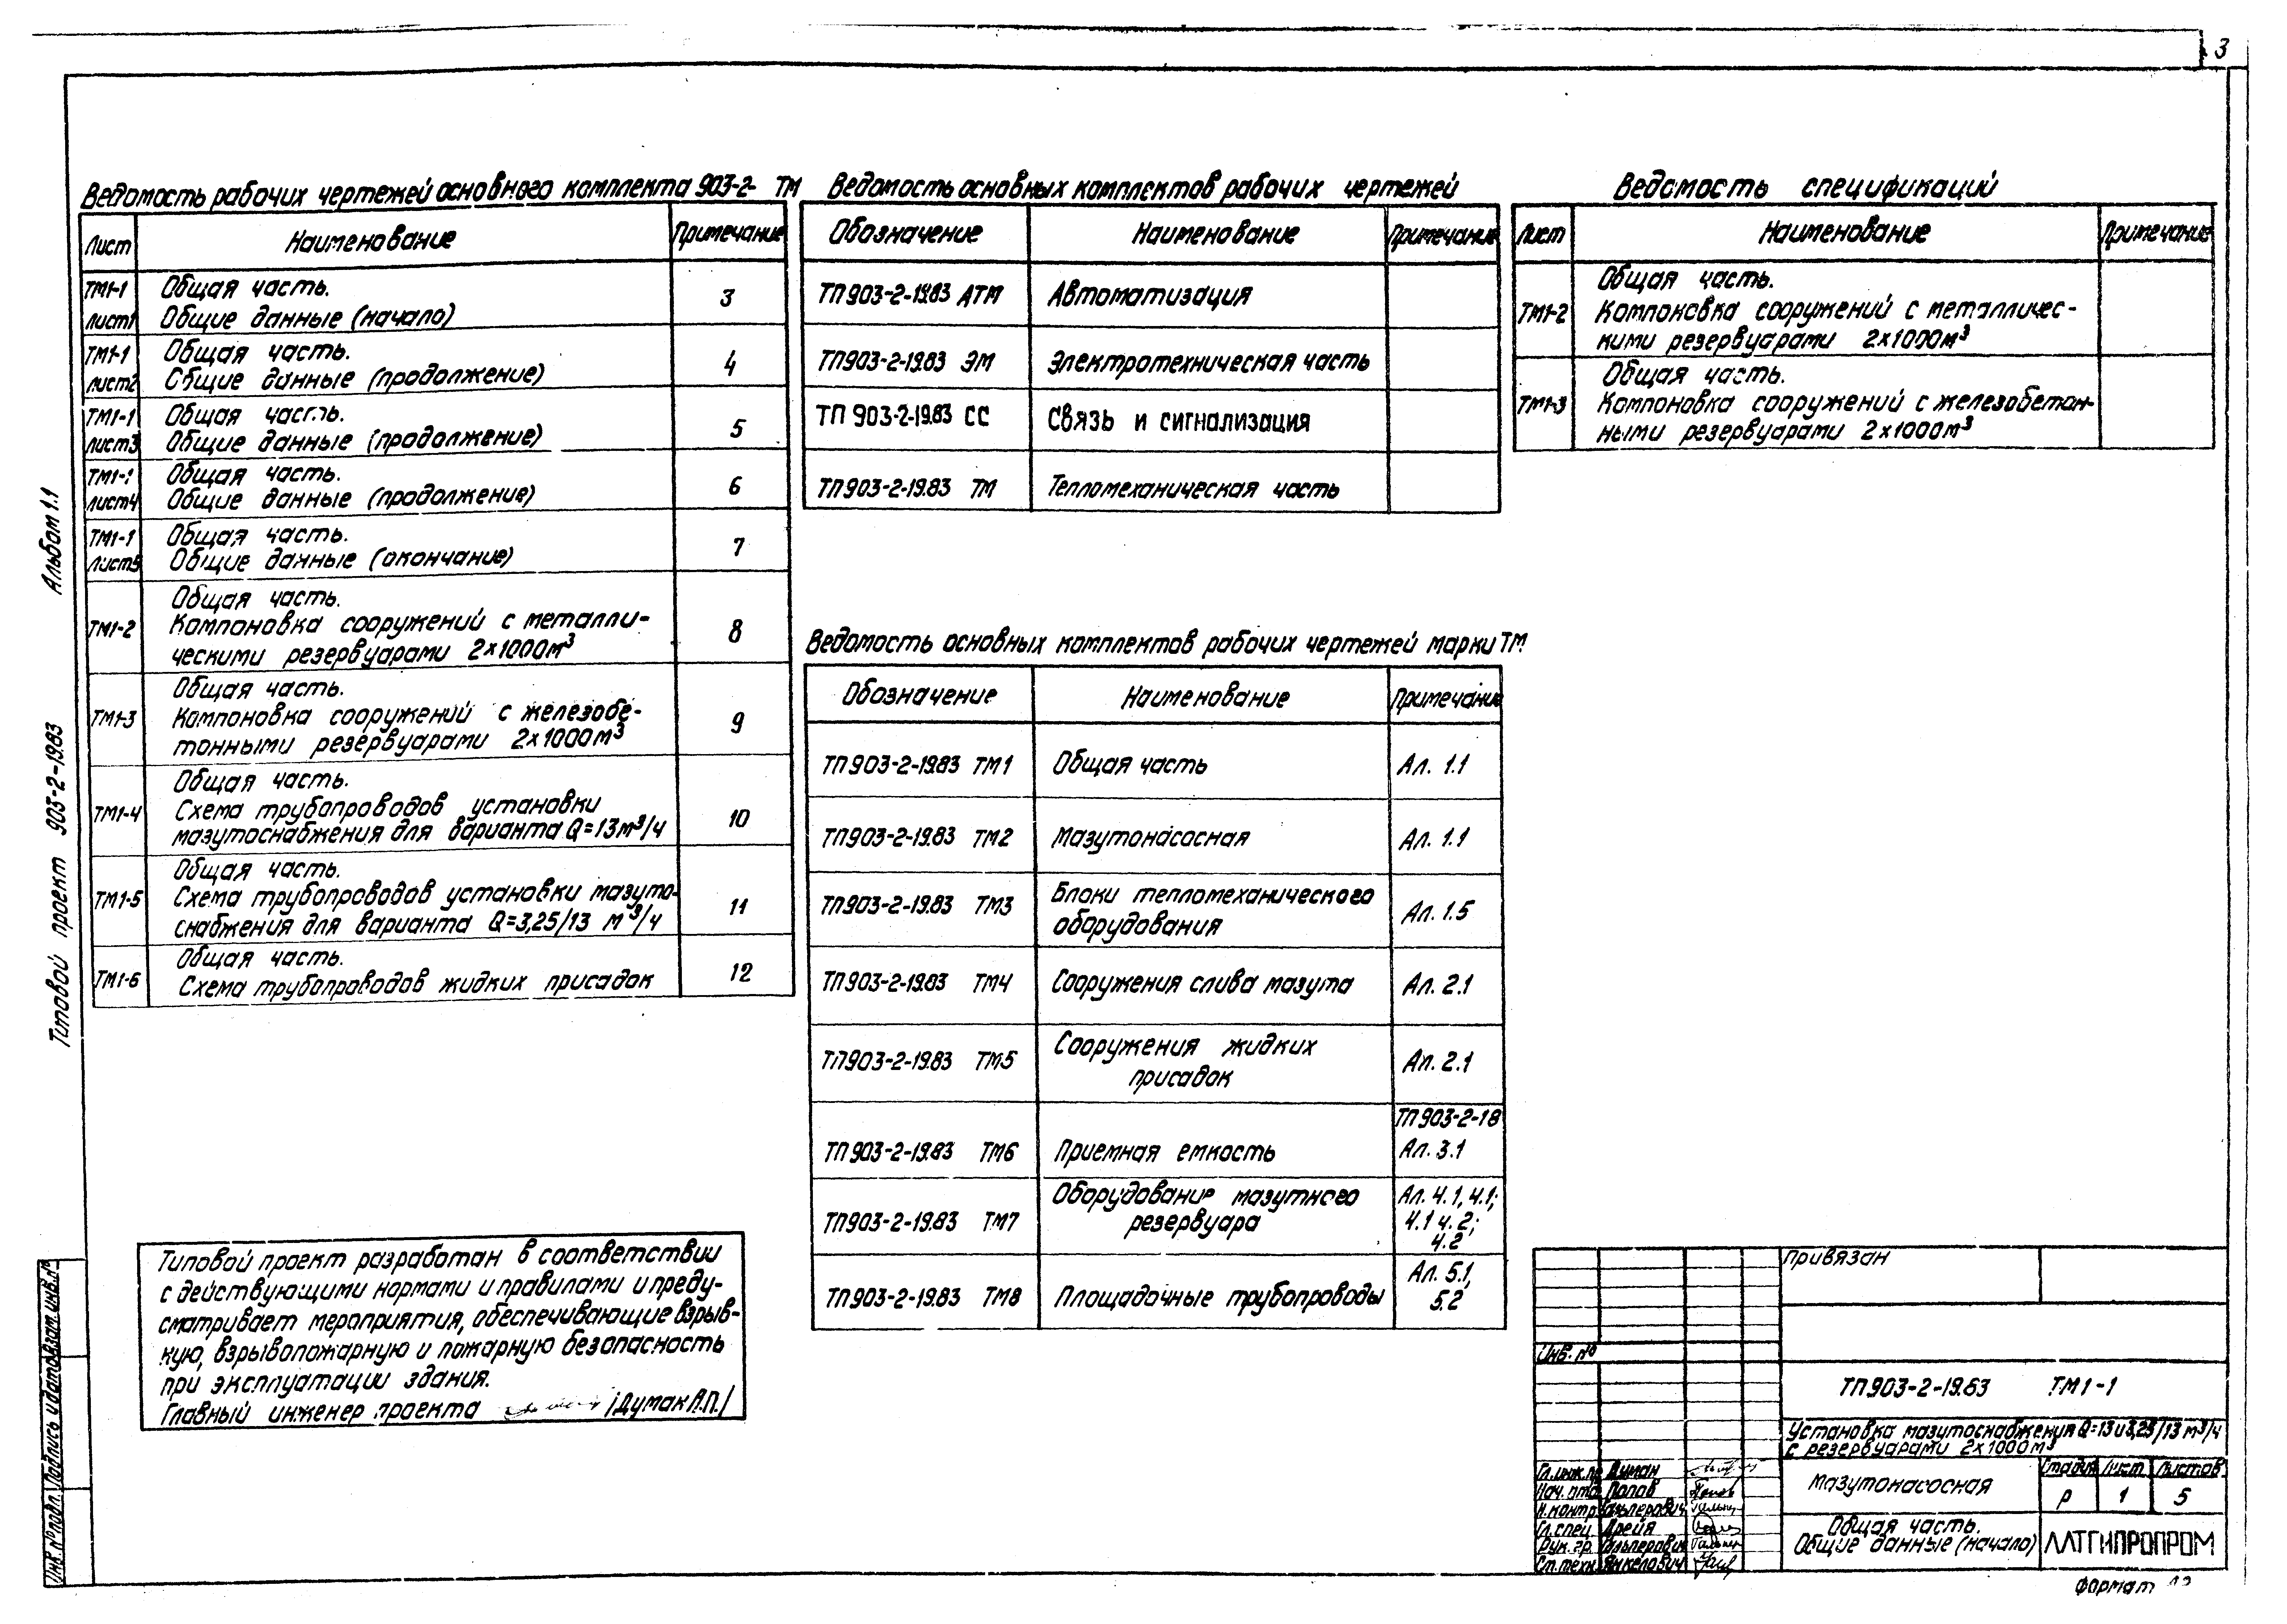 3
Ведомость рабочих чертежей основного комплекта 903-2- ТМ
Лист Наименование Примечание
ТМ1-1 Общая часть.
лист1 Общие данные (начало) 3
ТМ1-1 Общая часть.
лист2 Общие данные (продолжение) 4
ТМ1-1 Общая часть.
лист3 Общие данные (продолжение) 5
ТМ1-1 Общая часть.
лист4 Общие данные (продолжение) 6
ТМ1-1 Общая часть.
лист5 Общие данные (окончание) 7
Общая часть.
ТМ1-2 Компоновка сооружений с металли- 8
ческими резервуарами 2х1000м³
Общая часть.
ТМ1-3 Компоновка сооружений с железобе- 9
тонными резервуарами 2х1000м³
Общая часть.
ТМ1-4 Схема трубопроводов установки 10
мазутоснабжения для варианта Q=13м³/ч
Общая часть.
ТМ1-5 Схема трубопроводов установки мазуто- 11
снабжения для варианта Q=3,25/13 м³/ч
Общая часть.
ТМ1-6 Схема трубопроводов жидких присадок 12
Ведомость основных комплектов рабочих чертежей
Обозначение Наименование Примечание
ТП903-2-19.83 АТМ Автоматизация
ТП903-2-19.83 ЭМ Электротехническая часть
ТП 903-2-19.83 СС Связь и сигнализация
ТП903-2-19.83 ТМ Тепломеханическая часть
Ведомость спецификаций
Лист Наименование Примечание
Общая часть.
ТМ1-2 Компоновка сооружений с металличес-
кими резервуарами 2х1000м³
Общая часть.
ТМ1-3 Компоновка сооружений с железобетон-
ными резервуарами 2х1000м³
Ведомость основных комплектов рабочих чертежей марки ТМ
Обозначение Наименование Примечание
ТП903-2-19.83 ТМ1 Общая часть Ал. 1.1
ТП903-2-19.83 ТМ2 Мазутонасосная Ал. 1.1
ТП903-2-19.83 ТМ3 Блоки тепломеханического
оборудования Ал. 1.5
ТП903-2-19.83 ТМ4 Сооружения слива мазута Ал. 2.1
ТП903-2-19.83 ТМ5 Сооружения жидких
присадок Ал. 2.1
ТП903-2-18
ТП903-2-19.83 ТМ6 Приемная емкость Ал. 3.1
Оборудование мазутного Ал. 4.1, 4.1;
ТП903-2-19.83 ТМ7 резервуара 4.1 4.2;
4.2
Ал. 5.1,
ТП903-2-19.83 ТМ8 Площадочные трубопроводы 5.2
Типовой проект разработан в соответствии
с действующими нормами и правилами и преду-
сматривает мероприятия, обеспечивающие взрыв-
ную, взрывопожарную и пожарную безопасность
при эксплуатации здания.
Главный инженер проекта /Думан А.П./
Альбом 1.1
Типовой проект 903-2-19.83
Инв. № подл. Подпись и дата Взам. инв. №
Привязан
Инв. №
ТП903-2-19.83 ТМ1-1
Установка мазутоснабжения Q=13 и 3,25/13 м³/ч
с резервуарами 2х1000м³
Гл. инж. пр. Думан
Нач. отд. Попов
Н. контр. Гальперович
Гл. спец. Дрейя
Рук. гр. Гальперович
Ст. техн. Янкелович
Мазутонасосная
Стадия Лист Листов
Р 1 5
Общая часть.
Общие данные (начало)
ЛАТГИПРОПРОМ
Формат